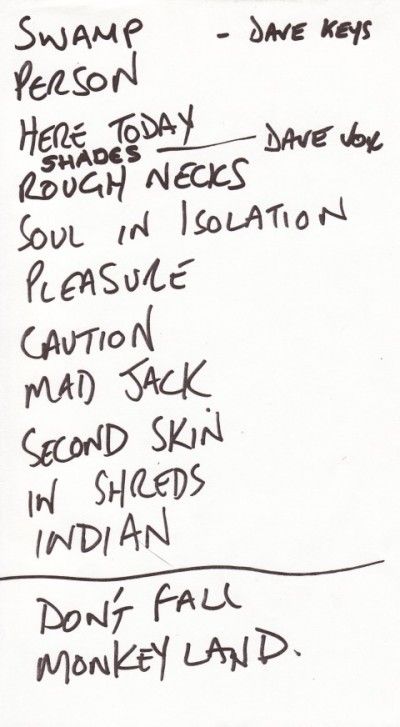 SWAMP - DAVE KEYS
PERSON
HERE TODAY
SHADES — DAVE VOX
ROUGH NECKS
SOUL IN ISOLATION
PLEASURE
CAUTION
MAD JACK
SECOND SKIN
IN SHREDS
INDIAN
DON'T FALL
MONKEY LAND.